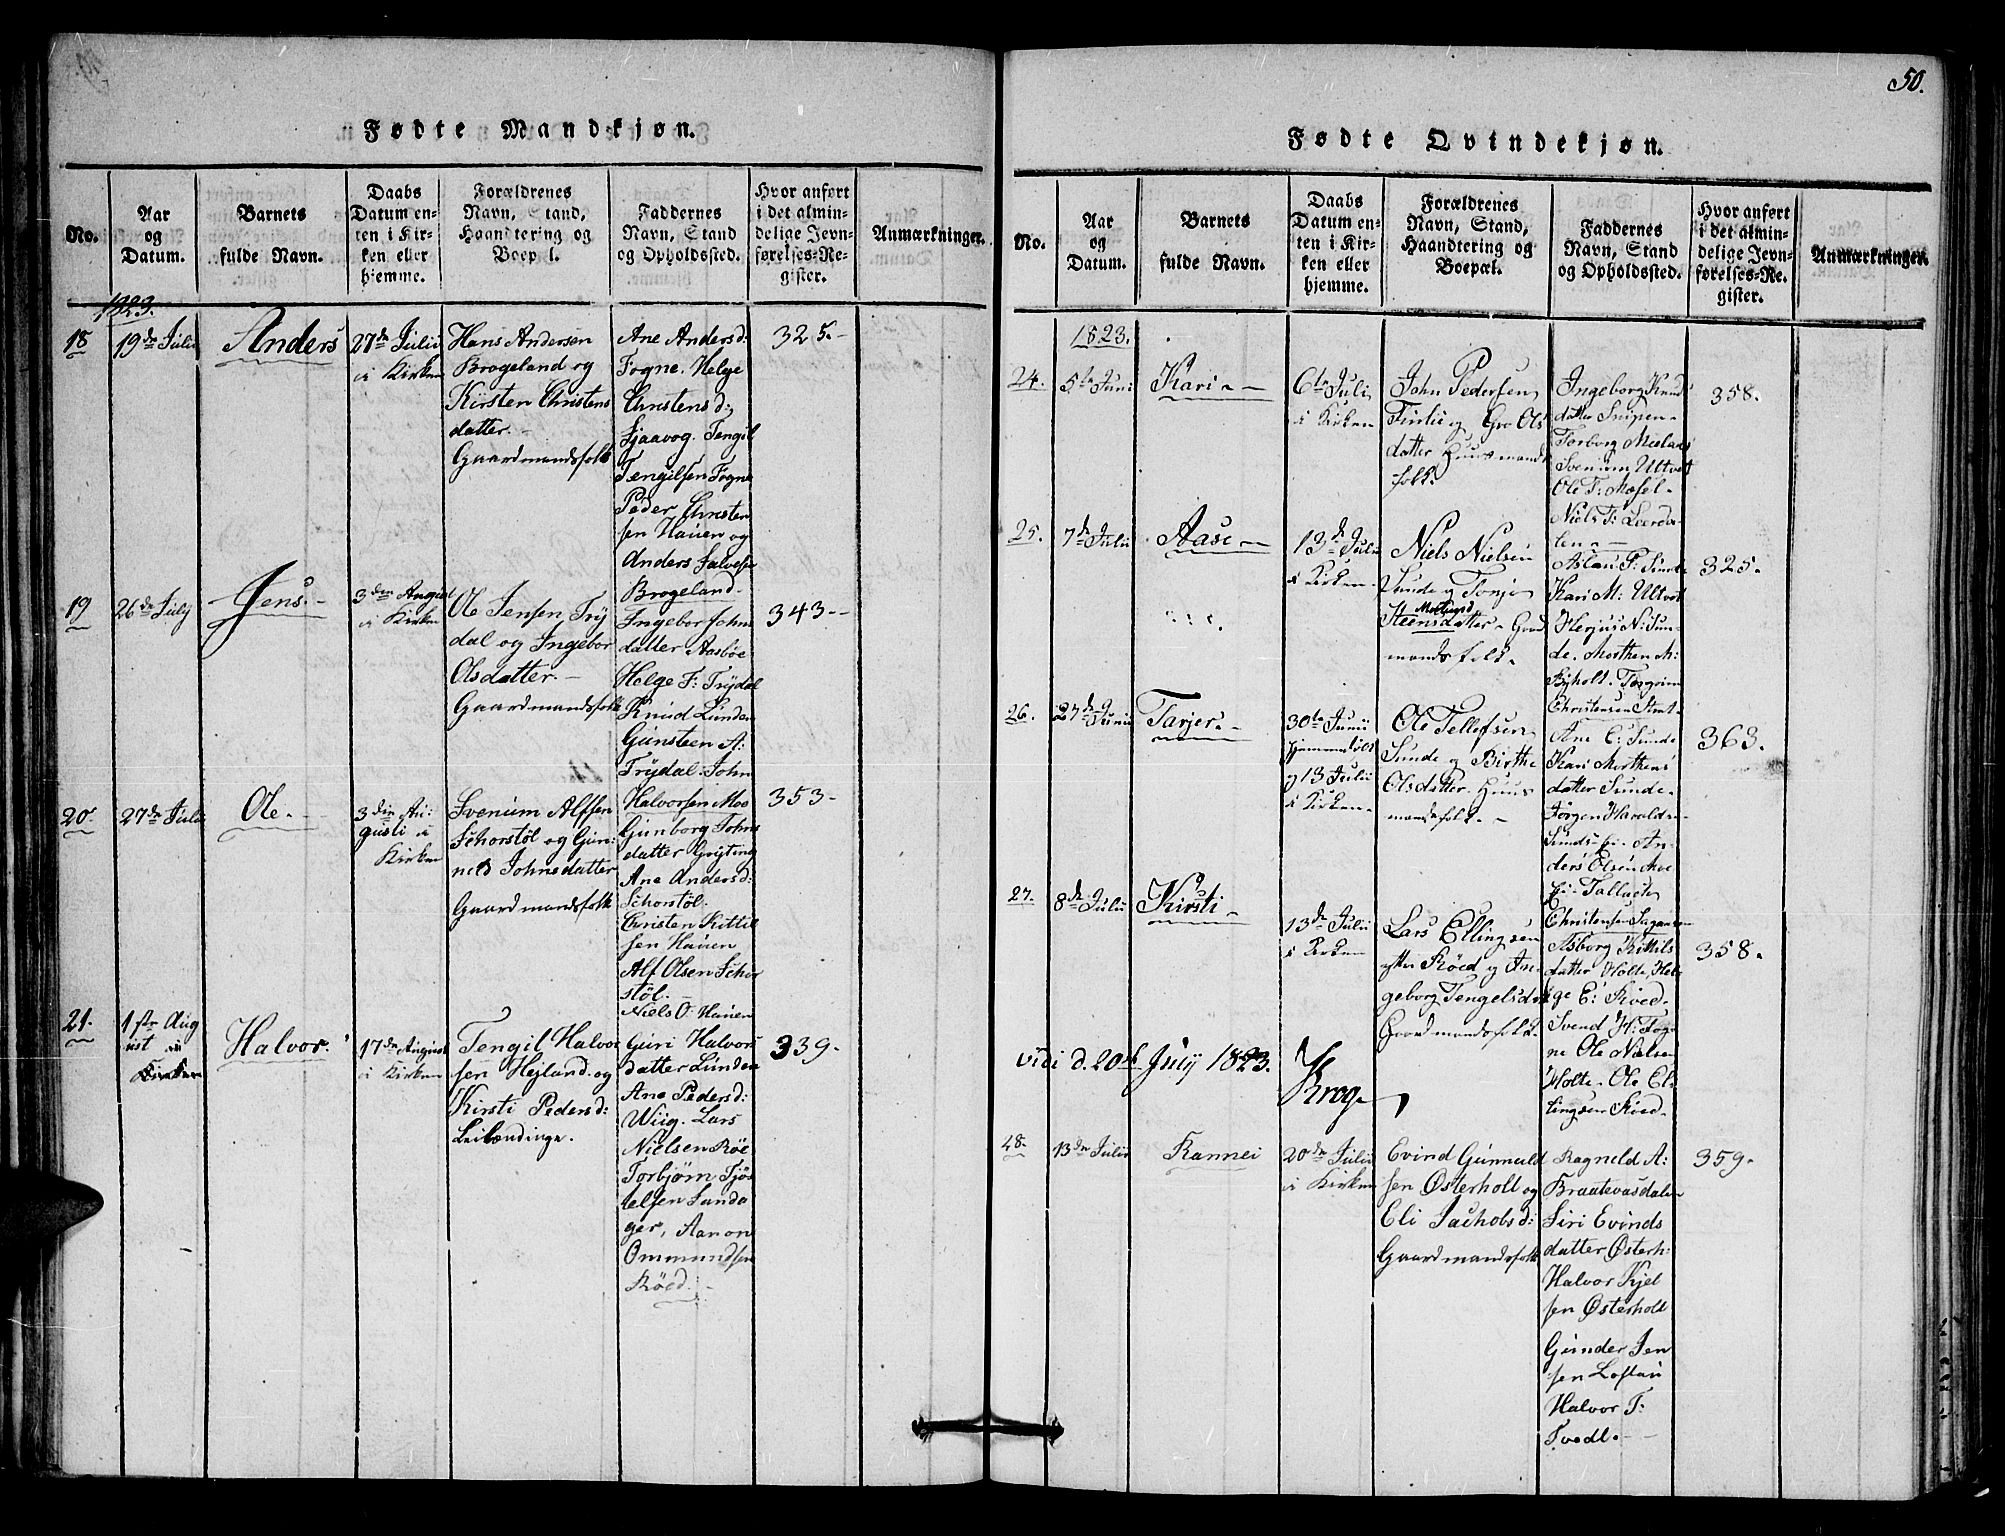 Fødte Mandkjøn.
No.
Aar
og
Datum.
Barnets
fulde Navn.
Daabs
Datum en-
ten i Kir-
ken eller
hjemme.
Forældrenes
Navn, Stand,
Haandtering og
Boepæl.
Faddernes
Navn, Stand
og Opholdssted.
Hvor anført
i det almin-
delige Jevn-
førelses-Re-
gister.
Anmærkninger.
1823.
18
19de Julii
Anders
27de Julii
i Kirken
Hans Andersen
Brogeland og
Kirsten Christens
datter.
Gaardmandsfolk
Ane Andersd:
Fogne. Helge
Christensd:
Sjaavog. Tengil
Tengilsen Fogne
Peder Christen
sen Hauen og
Anders Salvesen
Brogeland
325.-
19
26de July
Jens-
3den August
i Kirken
Ole Jensen Try
dal og Ingebor
Olsdatter.-
Gaardmandsfolk
Ingebor John
datter Aasböe
Helge F: Trÿdal
Knud Lunden
Gunsteen A:
Trÿdal. John
Halvorsen Moe
343.-
20
27de Julii
Ole.-
3den Au-
gusti i
Kirken
Svenum Alfsen
Schorstöl og Gun-
nild Johnsdatter
Gaardmandsfolk
Gunborg Johns
datter Gryting
Ane Andersd:
Schorstöl.
Christen Kittil
sen Hauen
Alf Olsen Schor
stöl.-
Niels O: Hauen
353-
21.
1ste Aug
ust i
Kirken
Halvor.
17de August
i Kirken
Tengil Halvor
sen Hejland og
Kirsti Pedersd:
Leilændinge.
Guri Halvors
datter Lunden
Ane Pedersd:
Wiig. Lars
Nielsen Röe
Torbjörn Tjös
telsen Sunda
ger, Aanon
Ommundsen
Röed.-
339-
50.
Fødte Qvindekjøn.
No.
Aar
og
Datum.
Barnets
fulde Navn.
Daabs
Datum en-
ten i Kir-
ken eller
hjemme.
Forældrenes
Navn, Stand,
Haandtering og
Boepæl.
Faddernes
Navn, Stand
og Opholdssted.
Hvor anført
i det almin-
delige Jevn-
førelses-Re-
gister.
Anmærkninger.
1823.
24.
5te Juni
Kari.-
6te Juli
i Kirken
John Pedersen
og Gro Ols
datter Huusmands
folk.
Ingeborg Knud
datter Snipen-
Torborg
Svenum Ultvet
Ole T: Mosel-
Niels T:
358.
25.
7de Julii
Aase-
13de Julii
i Kirken
Niels Nielsen
Sunde og Tonje
Steensdatter- Gaard
mandsfolk.
Aslau P: Sunde
Kari M: Ultvet
Herjus N: Sun-
de. Morthen M:
Byholt. Torgrim
Christensen
325.
26.
27de Junii
Tarjer.-
30te Junii
hjemmedöbt
og 13 Julii
i Kirken.
Ole Tellefsen
Sunde og Birthe
Olsdatter. Huus
mandsfolk.-
Ane C: Sunde
Kari Morthens
datter Sunde-
Jörgen Haralds-
An-
ders Olsen Moe
Christensen
363.
27.
8de Julii
Kirsti-
13de Julii
i Kirken
Lars Ellingsen
ytter Röed og In-
geborg Tengelsdat
Gaardmandsfolk.
Asborg Kittils
datter Holte, Hel-
ge E: Röed-
Svend H: Fog-
ne Ole Nielsen
Holte- Ole El-
lingsen Röed-
358.
vidi d. 20de July 1823.
Krog
48.
13de Julii
Rannei
20de Julii
i Kirken
Evind Gunnuld
sen Østerholt og
Eli Jachobsd:
Gaardmandsfolk
Ragneld A:
Braatevasdalen
Siri Evinds
datter Østerh:
Halvor Kjel
sen Østerholt
Gunder Jen
sen Loftau
Halvor T:
Tvedt.-
359.